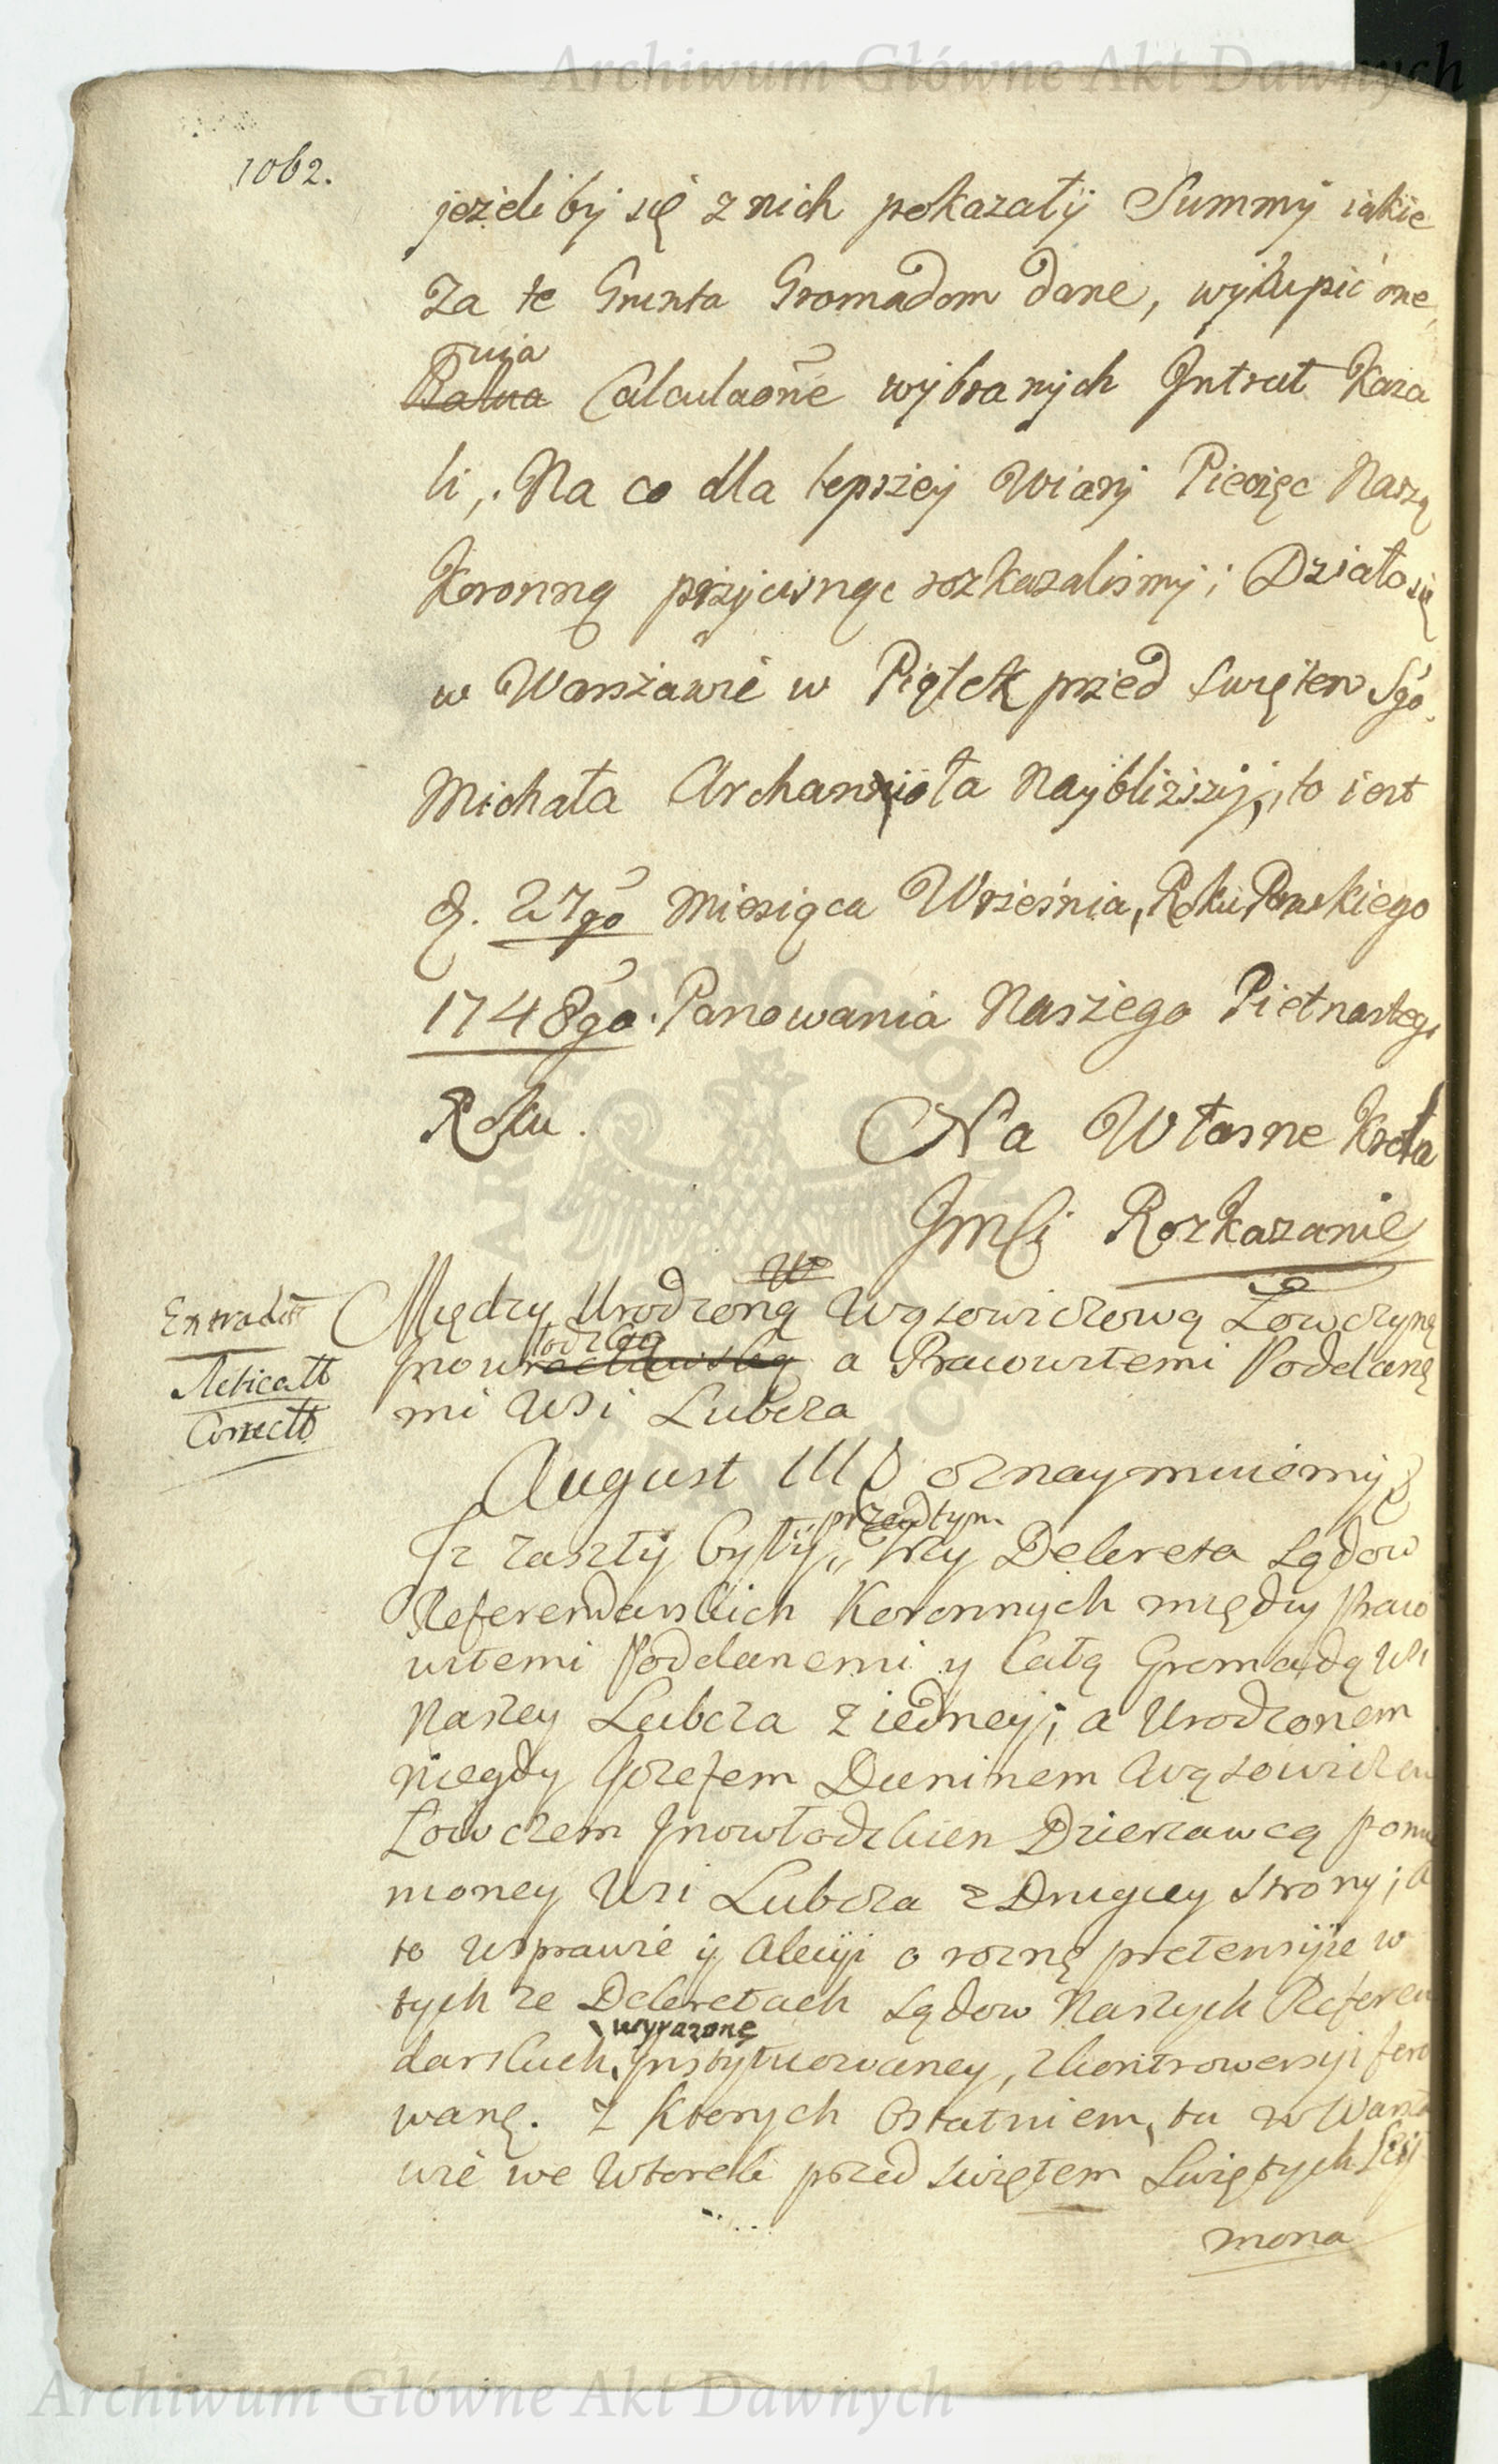 Archiwum Główne Akt Dawnych
1062.
jeżeli by się z nich pokazałÿ Summÿ iakie
Za te Grunta Gromadom dane, wykupić one,
uia
Calculaōne wybranych Intrat Kaza
li, Na co dla lepszey Wiary Pieczęc Naszą
Koronną przycisnąc rozkazalismy; Działo się
w Warszawie w Piątek przed Swiętem Sgo.
Michała Archanioła Nayblizszy, to iest
d. 27go Miesiąca Wrzesnia, Roku Panskiego
1748go. Panowania Naszego Pietnastego
Roku.
Na Własne Krola
JMCi Rozkazanie
Extradit
Między Urodzoną Wąsowiczową Łowczyną
łodzką
Correctt
Inowrocławską a Pracowitemi Poddany
mi Wsi Lubcza
August III oznaymuiemy
przedtym
Iz zaszłÿ byłÿ, trzy Dekreta Sądow
Referendarskich Koronnych między Praco
witemi Poddanemi y Całą Gromadą Wsi
Naszey Lubcza z iedney; a Urodzonem
niegdy Jozefem Duninem Wąsowiczem
Łowczem Inowłodzkiem Dzierzawcą pomie
nioney Wsi Lubcza z Drugiey strony; a
to w sprawie y Akcyi o rozne pretensyie w
tych ze Dekretach Sądow Naszych Referen
wyrazonę
darskich, Instytuowaney, z kontrowersyi fero
wanę. Z Ktorych Ostatniem, tu w Warsza
wie we Wtorek przed swiętem Swiętych Szy
mona
Archiwum Główne Akt Dawnych